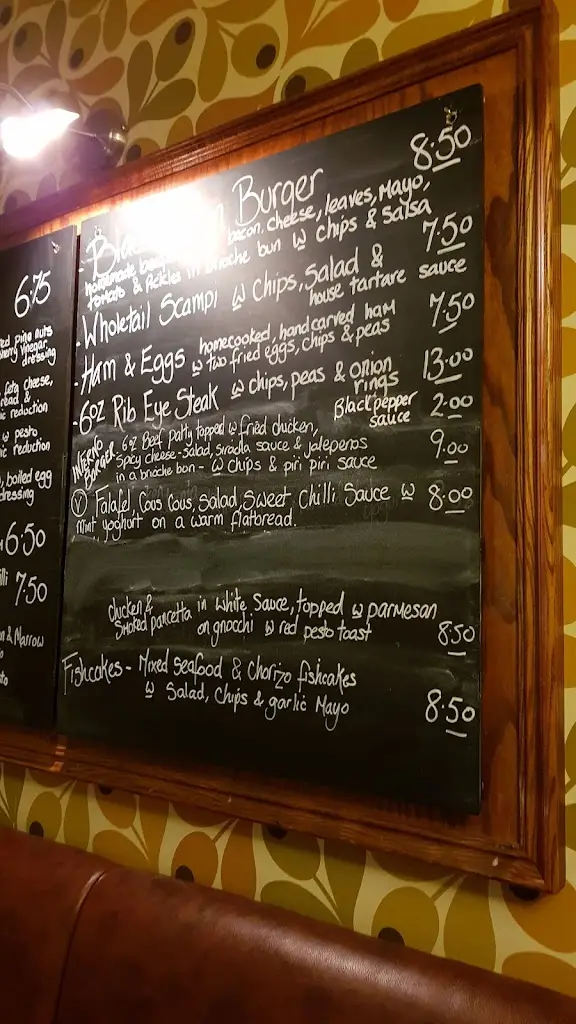 6.75
ed pine nuts
dressing
feta cheese,
reduction
w pesto
reduction
boiled egg
dressing
6.50
7.50
& Marrow
Burger 8.50
homemade bacon, cheese, leaves, Mayo,
tomato & Pickles in brioche bun w chips & salsa
- Wholetail Scampi w chips, salad & 7.50
house tartare sauce
- Ham & Eggs homecooked, hand carved ham 7.50
w two fried eggs, chips & peas
- 6oz Rib Eye Steak w chips, peas & onion 13.00
rings
Black pepper 2.00
sauce
INFERNO BURGER 6oz Beef patty topped w fried chicken, 9.00
spicy cheese - salad, siracha sauce & jalepenos
in a brioche bun - w chips & piri piri sauce
V Falafel, Cous Cous, Salad, Sweet Chilli Sauce w 8.00
mint yoghurt on a warm flatbread.
chicken &
smoked pancetta in white sauce, topped w parmesan
on gnocchi w red pesto toast 8.50
Fishcakes - Mixed seafood & Chorizo fishcakes
w Salad, Chips & garlic Mayo 8.50